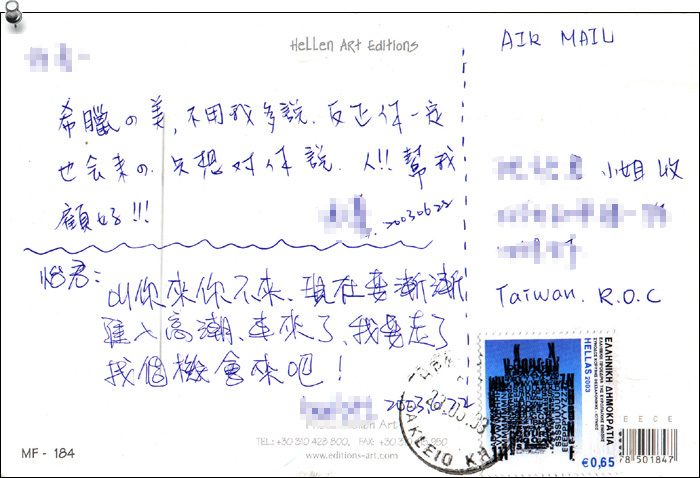 Hellen Art Editions
AIR MAIL
希臘の美, 不用我多說. 反正你一定
也会来の. 只想对你說. 人!! 幫我
顧好!!!
20030622
小姐 收
Taiwan. R.O.C
怡君:
叫你來你不來、現在要漸漸
進入高潮、車來了、我要走了
找個機會來吧!
2003.6.22
ΕΛΛΗΝΙΚΗ ΔΗΜΟΚΡΑΤΙΑ
HELLAS 2003
€0,65
GREECE
78501847
www.editions-art.com
MF - 184